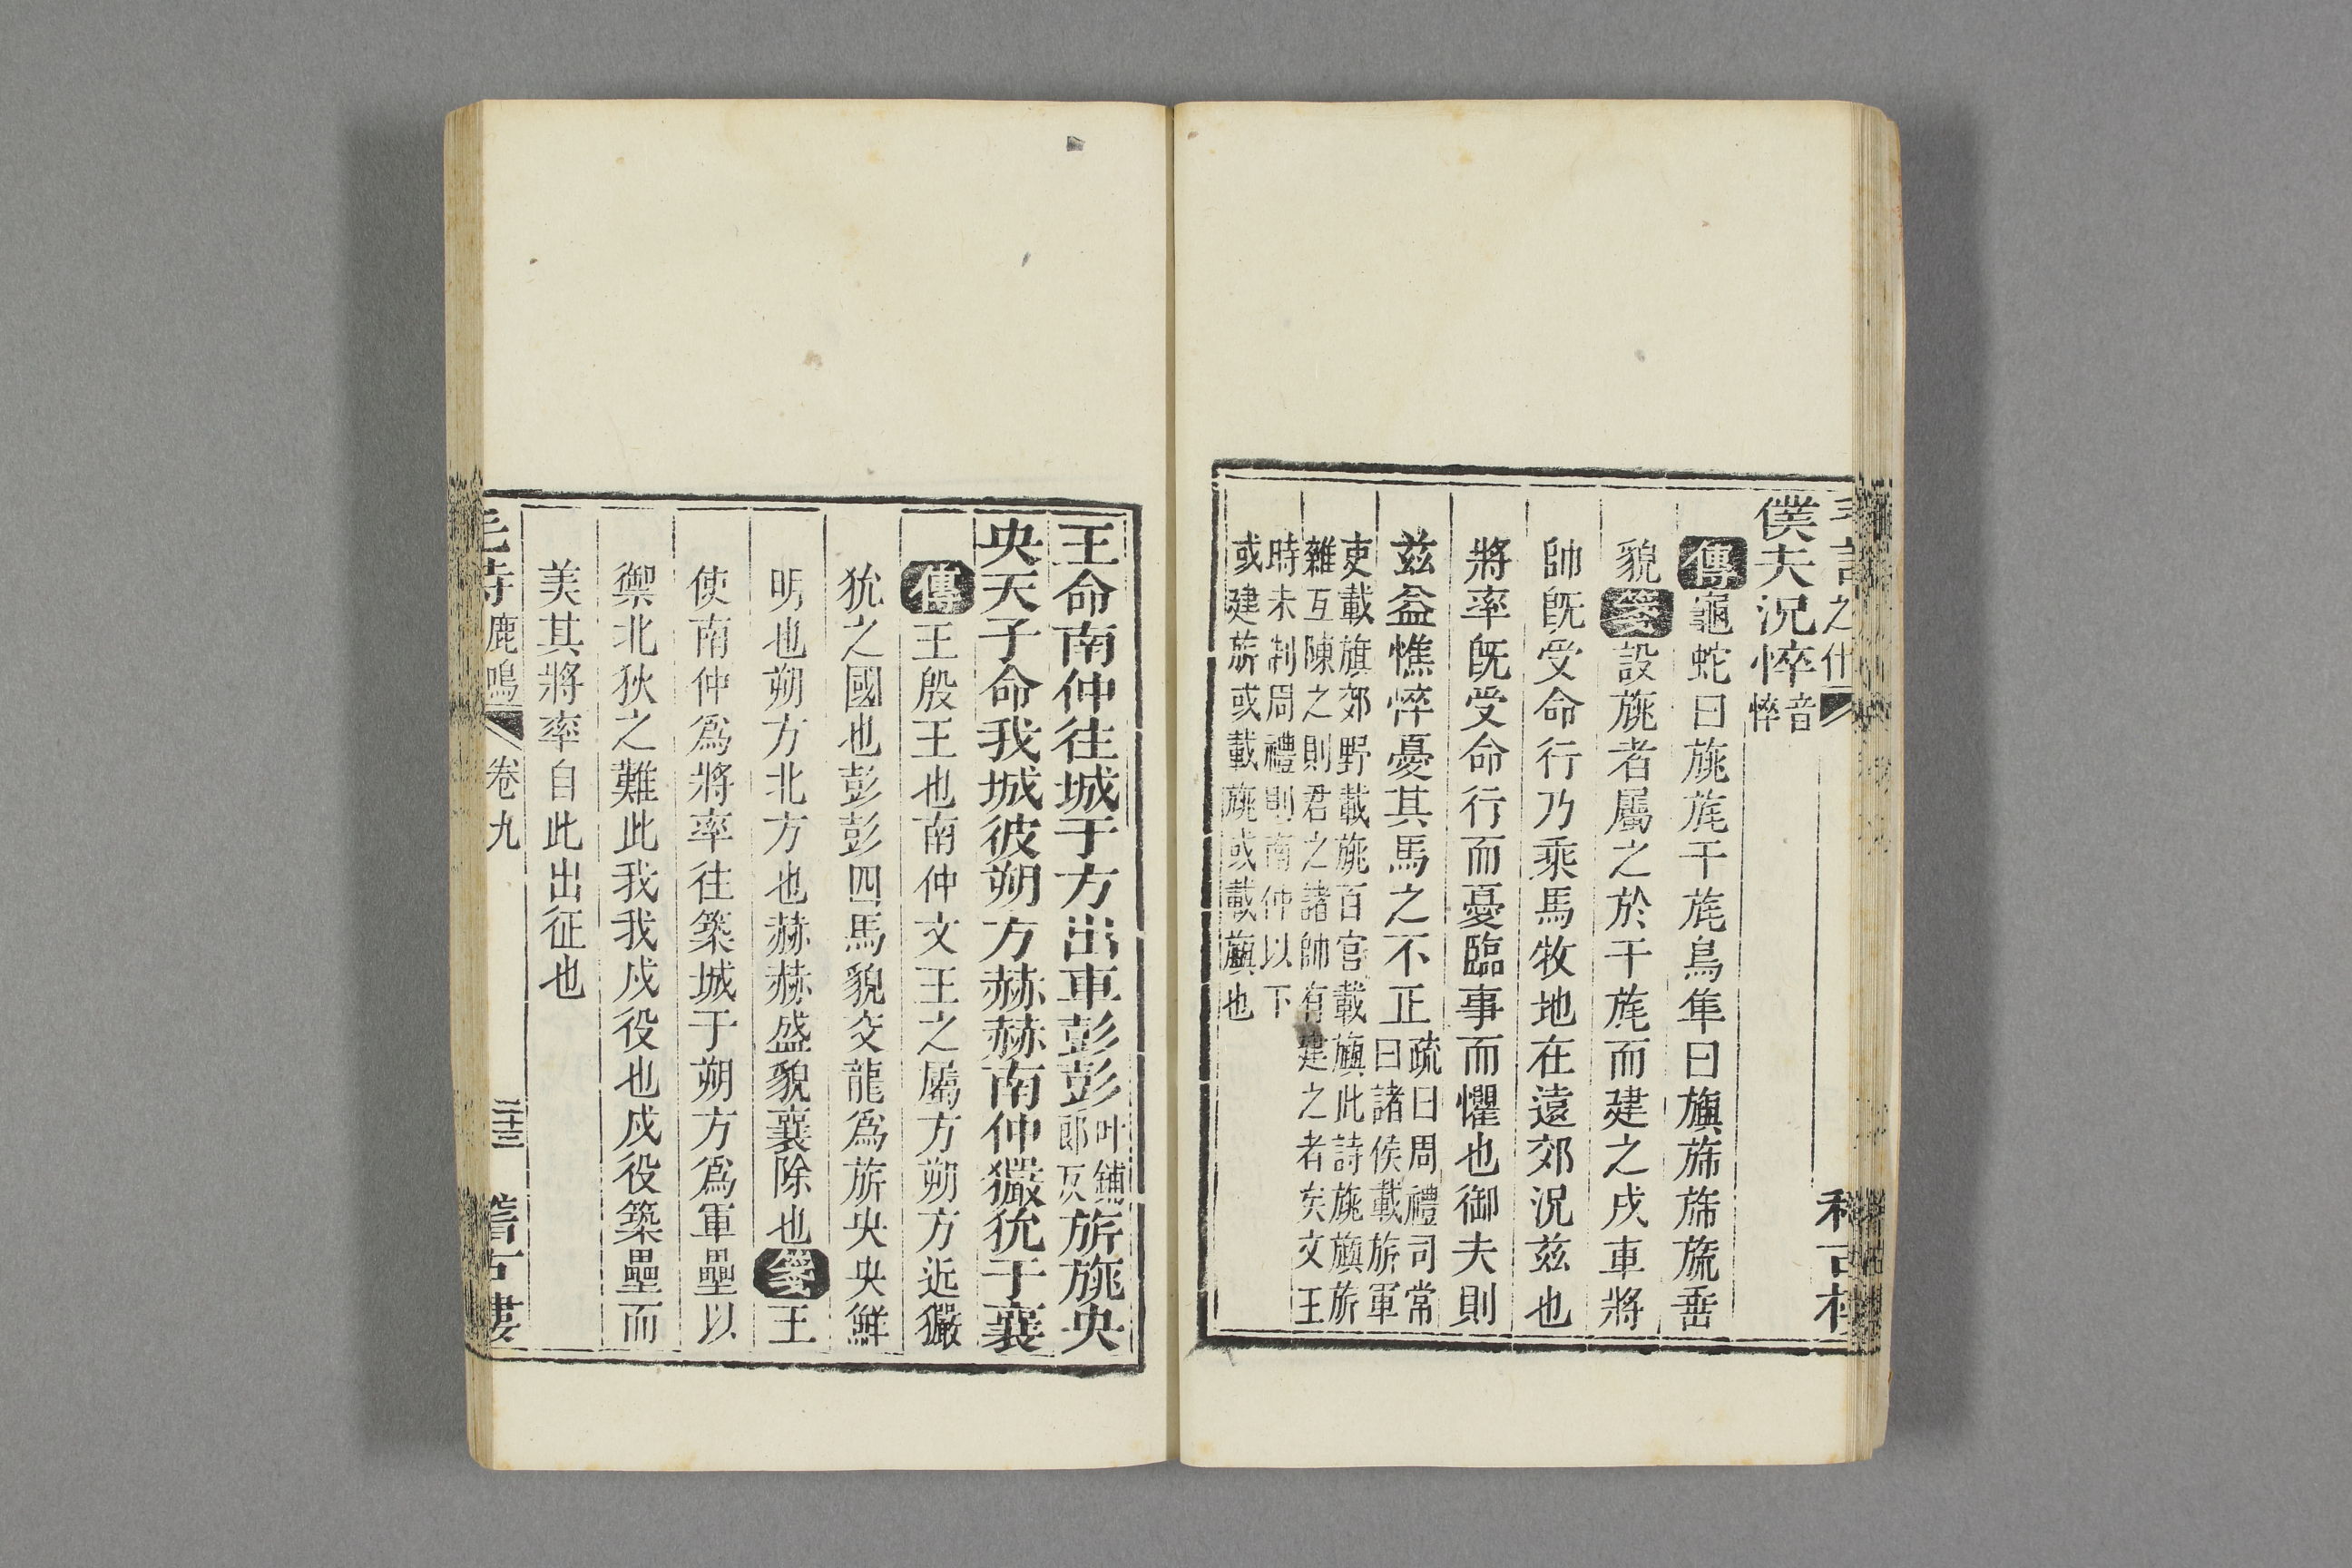 僕夫況悴音悴
傳龜蛇曰旐旄干旄鳥隼曰旟旆旆旒垂
貌箋設旐者屬之於干旄而建之戎車將
帥旣受命行乃乘馬牧地在遠郊況茲也
將率旣受命行而憂臨事而懼也御夫則
茲益憔悴憂其馬之不正疏曰周禮司常
曰諸侯載旂軍
吏載旗郊野載旐百官載旟此詩旐旟旂
雜互陳之則君之諸帥有建之者矣文王
時未制周禮則南仲以下
或建旂或載旐或載旟也
王命南仲往城于方出車彭彭叶鋪郎反旂旐央
央天子命我城彼朔方赫赫南仲玁狁于襄
傳王殷王也南仲文王之屬方朔方近玁
狁之國也彭彭四馬貌交龍爲旂央央鮮
明也朔方北方也赫赫盛貌襄除也箋王
使南仲爲將率往築城于朔方爲軍壘以
禦北狄之難此我我戍役也戍役築壘而
美其將率自此出征也
毛詩鹿鳴 卷九 二十三 稽古樓